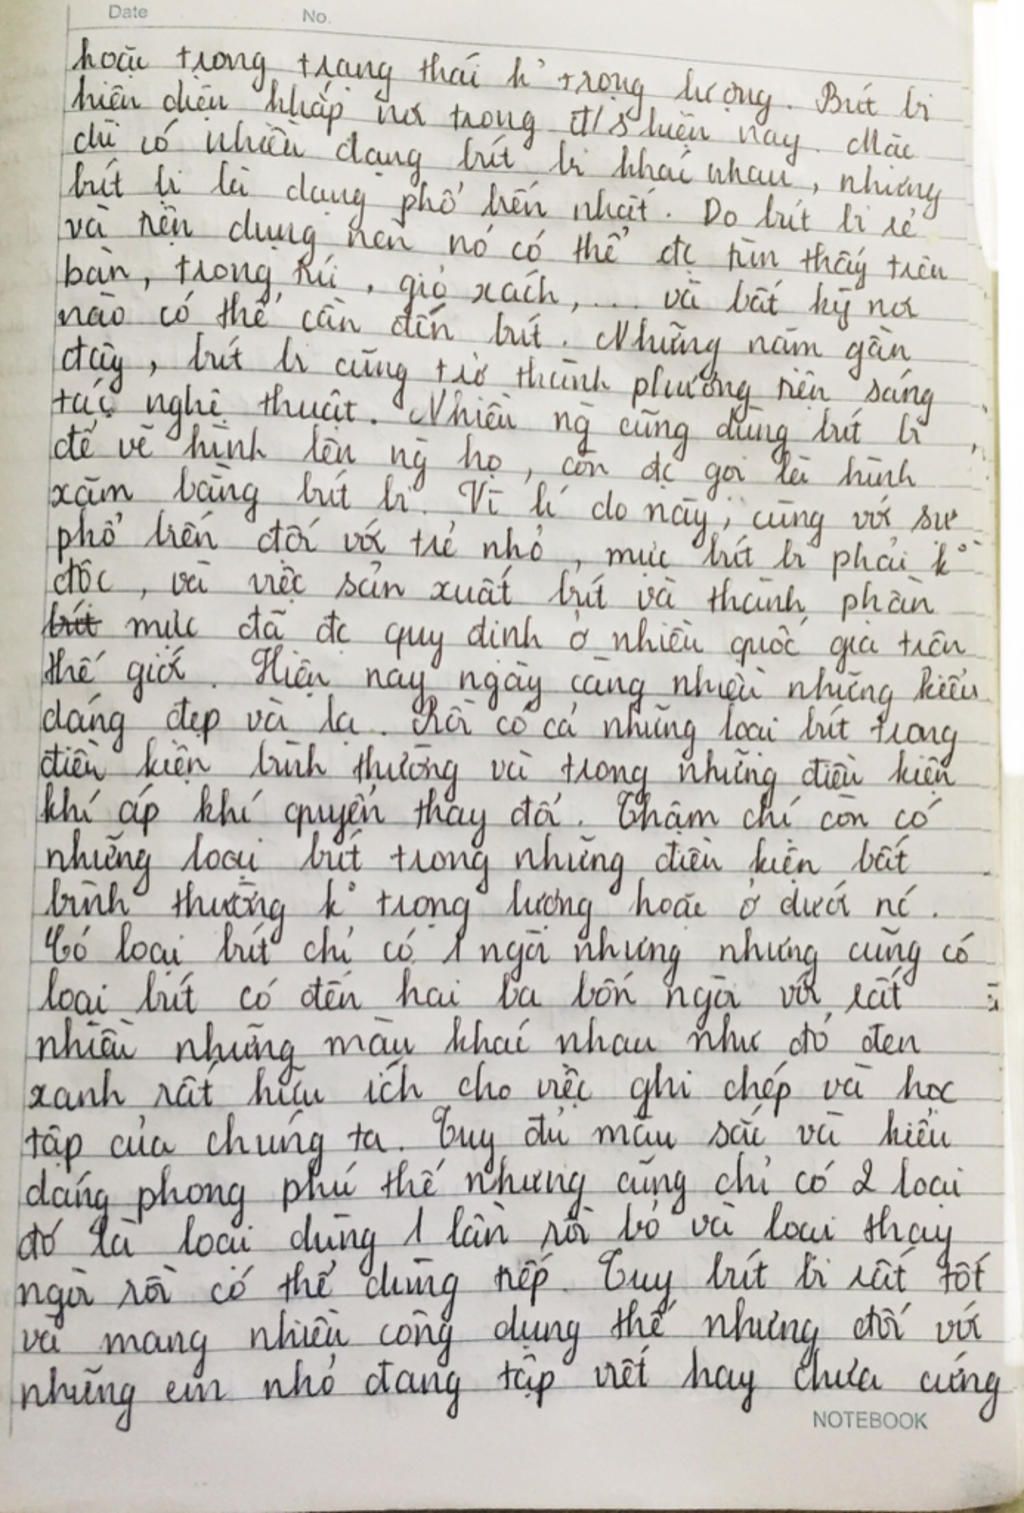 Date No.
hoặc trong trạng thái k° trọng lượng. Bút bi
hiện diện khắp nơi trong đ/s hiện nay. Mặc
dù có nhiều dạng bút bi khác nhau, nhưng
bút bi là dạng phổ biến nhất. Do bút bi rẻ
và tiện dụng nên nó có thể đc tìm thấy trên
bàn, trong túi, giỏ xách, ... và bất kỳ nơi
nào có thể cần đến bút. Những năm gần
đây, bút bi cũng trở thành phương tiện sáng
tác nghệ thuật. Nhiều ng cũng dùng bút bi
để vẽ hình lên ng họ, còn đc gọi là hình
xăm bằng bút bi. Vì lí do này, cùng với sự
phổ biến đối với trẻ nhỏ, mực bút bi phải k°
độc, và việc sản xuất bút và thành phần
bút mực đã đc quy định ở nhiều quốc gia trên
thế giới. Hiện nay ngày càng nhiều những kiểu
dáng đẹp và lạ. Rồi có cả những loại bút trong
điều kiện bình thường và trong những điều kiện
khí áp khí quyển thay đổi. Thậm chí còn có
những loại bút trong những điều kiện bất
bình thường k° trọng lượng hoặc ở dưới nc.
Có loại bút chỉ có 1 ngòi nhưng nhưng cũng có
loại bút có đến hai ba bốn ngòi với rất
nhiều những màu khác nhau như đỏ đen
xanh rất hữu ích cho việc ghi chép và học
tập của chúng ta. Tuy đủ màu sắc và kiểu
dáng phong phú thế nhưng cũng chỉ có 2 loại
đó là loại dùng 1 lần rồi bỏ và loại thay
ngòi rồi có thể dùng tiếp. Tuy bút bi rất tốt
và mang nhiều công dụng thế nhưng đối với
những em nhỏ đang tập viết hay chưa cứng
NOTEBOOK